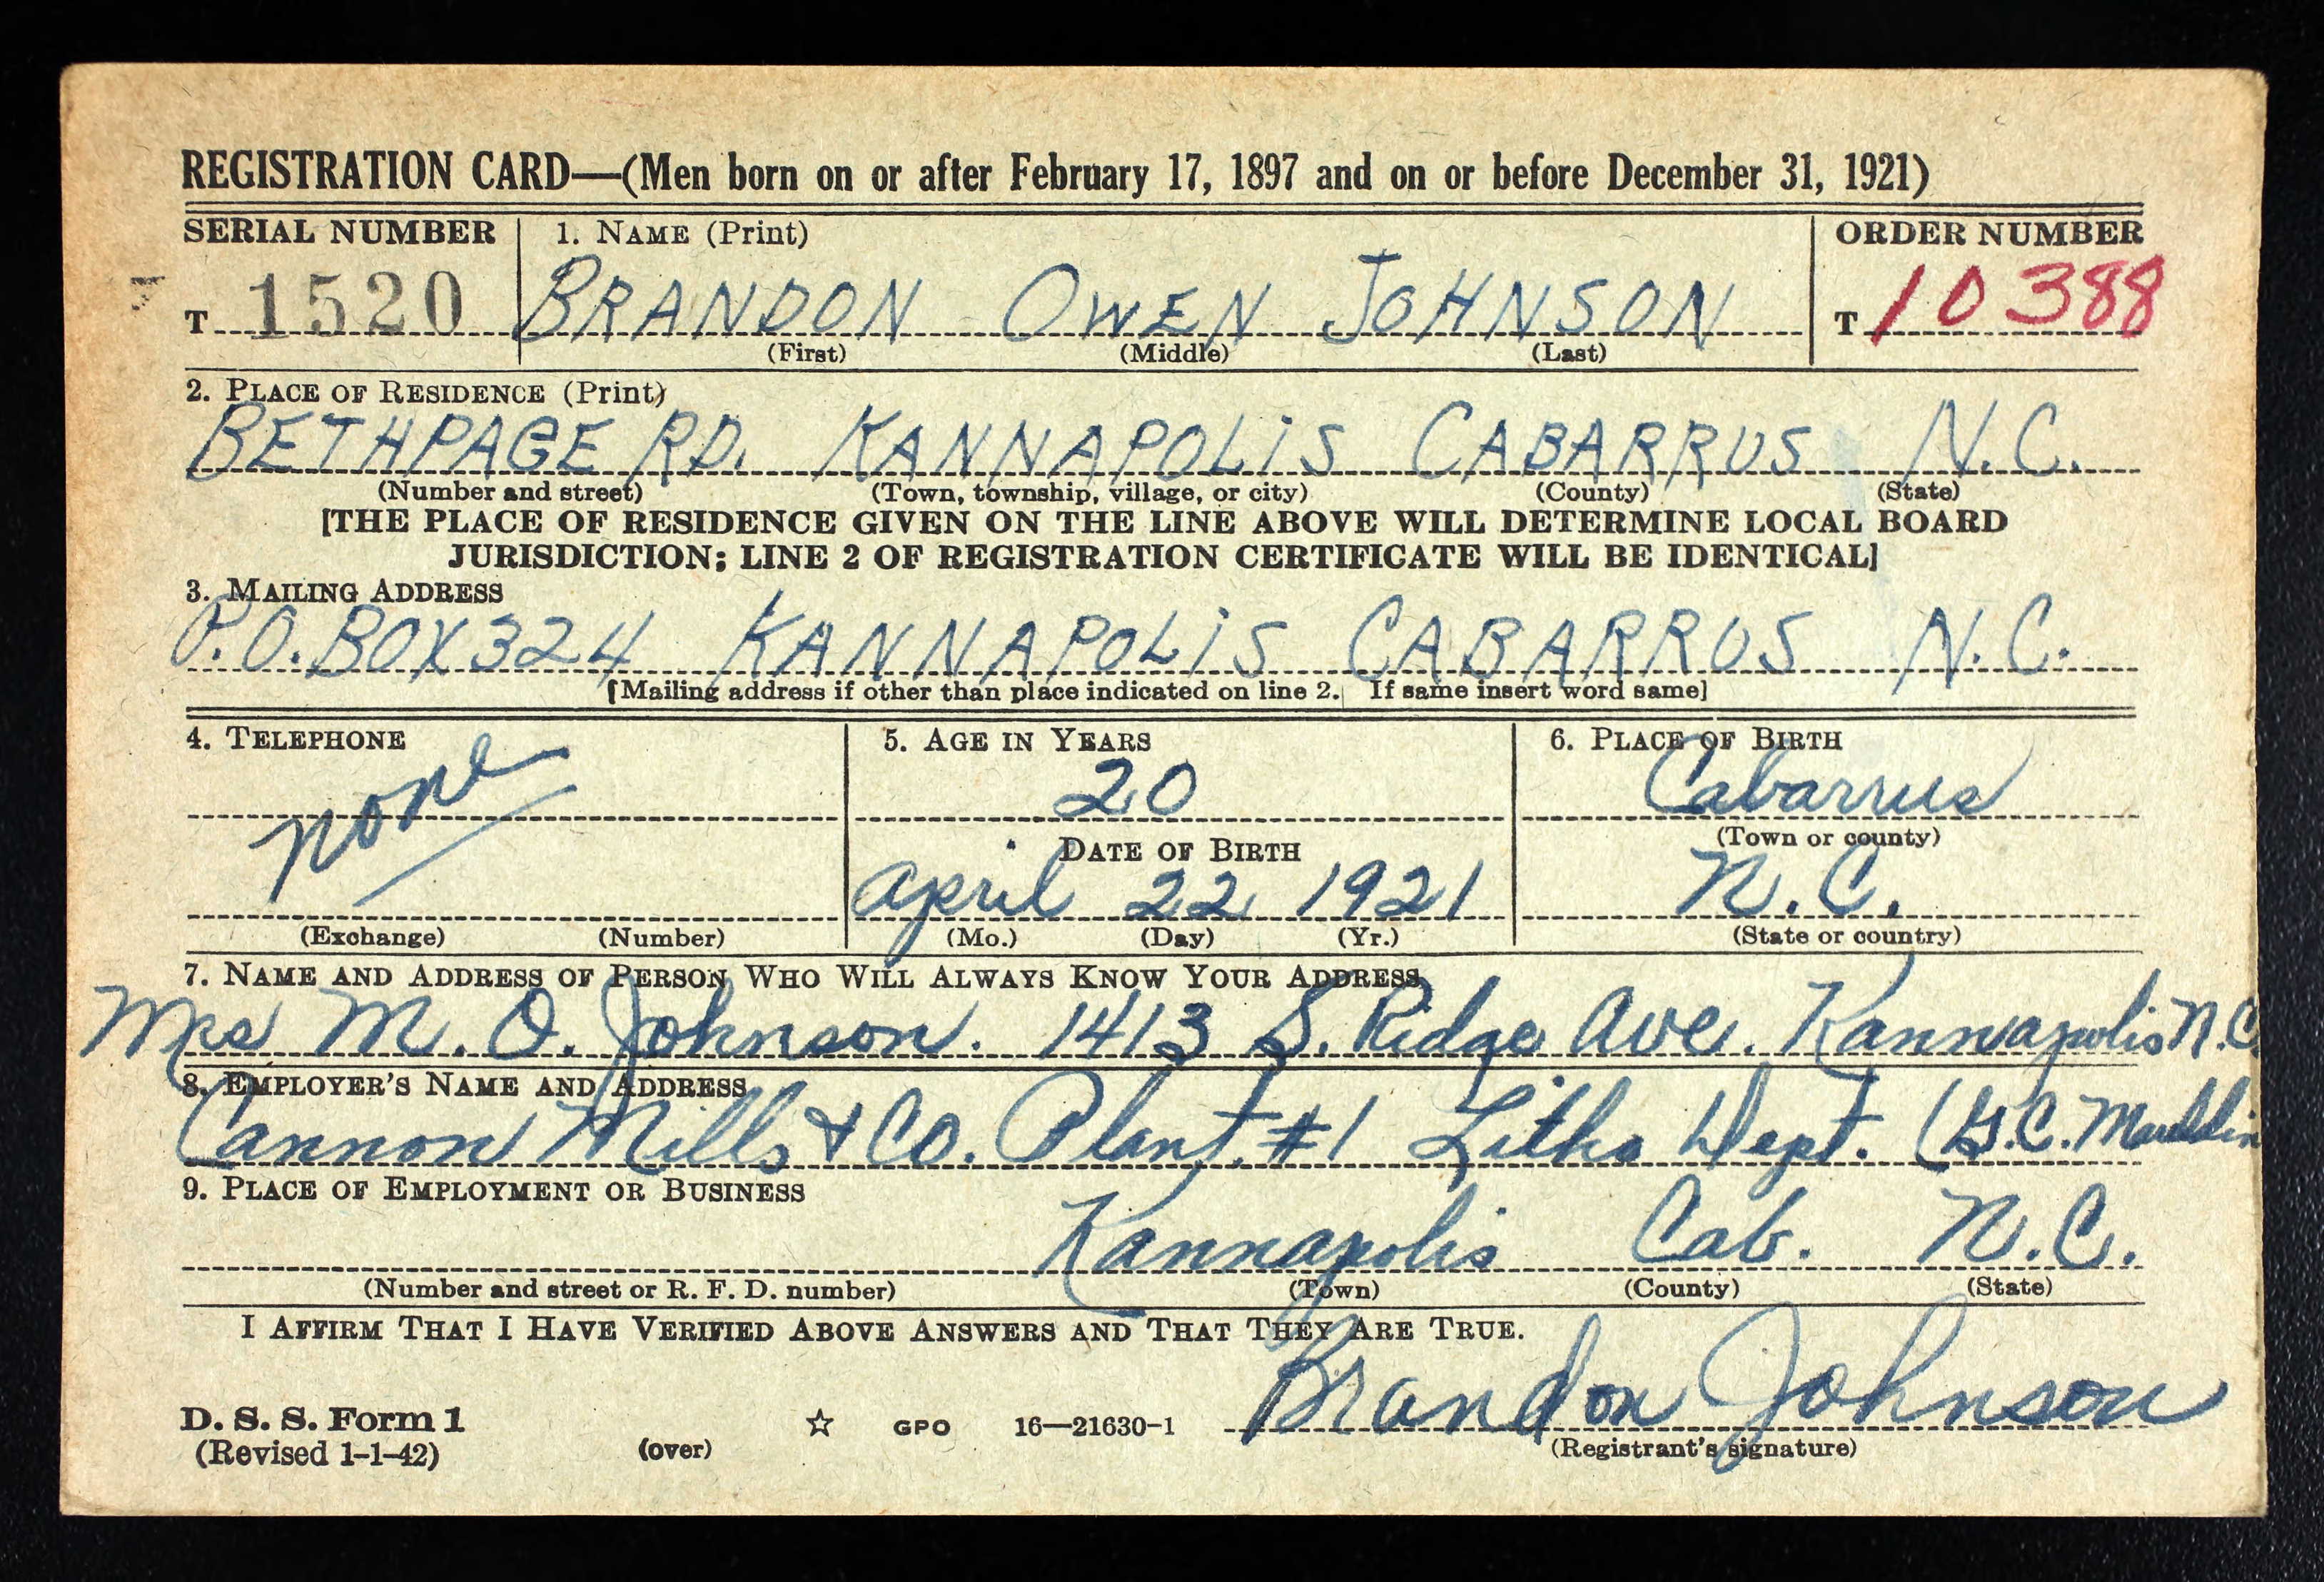 REGISTRATION CARD—(Men born on or after February 17, 1897 and on or before December 31, 1921)
SERIAL NUMBER 1. NAME (Print) ORDER NUMBER
T 1520 BRANDON OWEN JOHNSON T 10388
(First) (Middle) (Last)
2. PLACE OF RESIDENCE (Print)
BETHPAGE RD. KANNAPOLiS CABARRUS N.C.
(Number and street) (Town, township, village, or city) (County) (State)
[THE PLACE OF RESIDENCE GIVEN ON THE LINE ABOVE WILL DETERMINE LOCAL BOARD
JURISDICTION; LINE 2 OF REGISTRATION CERTIFICATE WILL BE IDENTICAL]
3. MAILING ADDRESS
P.O. BOX 324 KANNAPOLiS CABARRUS N.C.
[Mailing address if other than place indicated on line 2. If same insert word same]
4. TELEPHONE 5. AGE IN YEARS 6. PLACE OF BIRTH
none 20 Cabarrus
DATE OF BIRTH (Town or county)
April 22 1921 N.C.
(Exchange) (Number) (Mo.) (Day) (Yr.) (State or country)
7. NAME AND ADDRESS OF PERSON WHO WILL ALWAYS KNOW YOUR ADDRESS
Mrs M. O. Johnson. 1413 S. Ridge Ave. Kannapolis N.C.
8. EMPLOYER'S NAME AND ADDRESS
Cannon Mills & Co. Plant #1 Litho Dept. (G.C. Mauldin
9. PLACE OF EMPLOYMENT OR BUSINESS
Kannapolis Cab. N.C.
(Number and street or R. F. D. number) (Town) (County) (State)
I AFFIRM THAT I HAVE VERIFIED ABOVE ANSWERS AND THAT THEY ARE TRUE.
D. S. S. Form 1 GPO 16—21630-1 Brandon Johnson
(Revised 1-1-42) (over) (Registrant's signature)